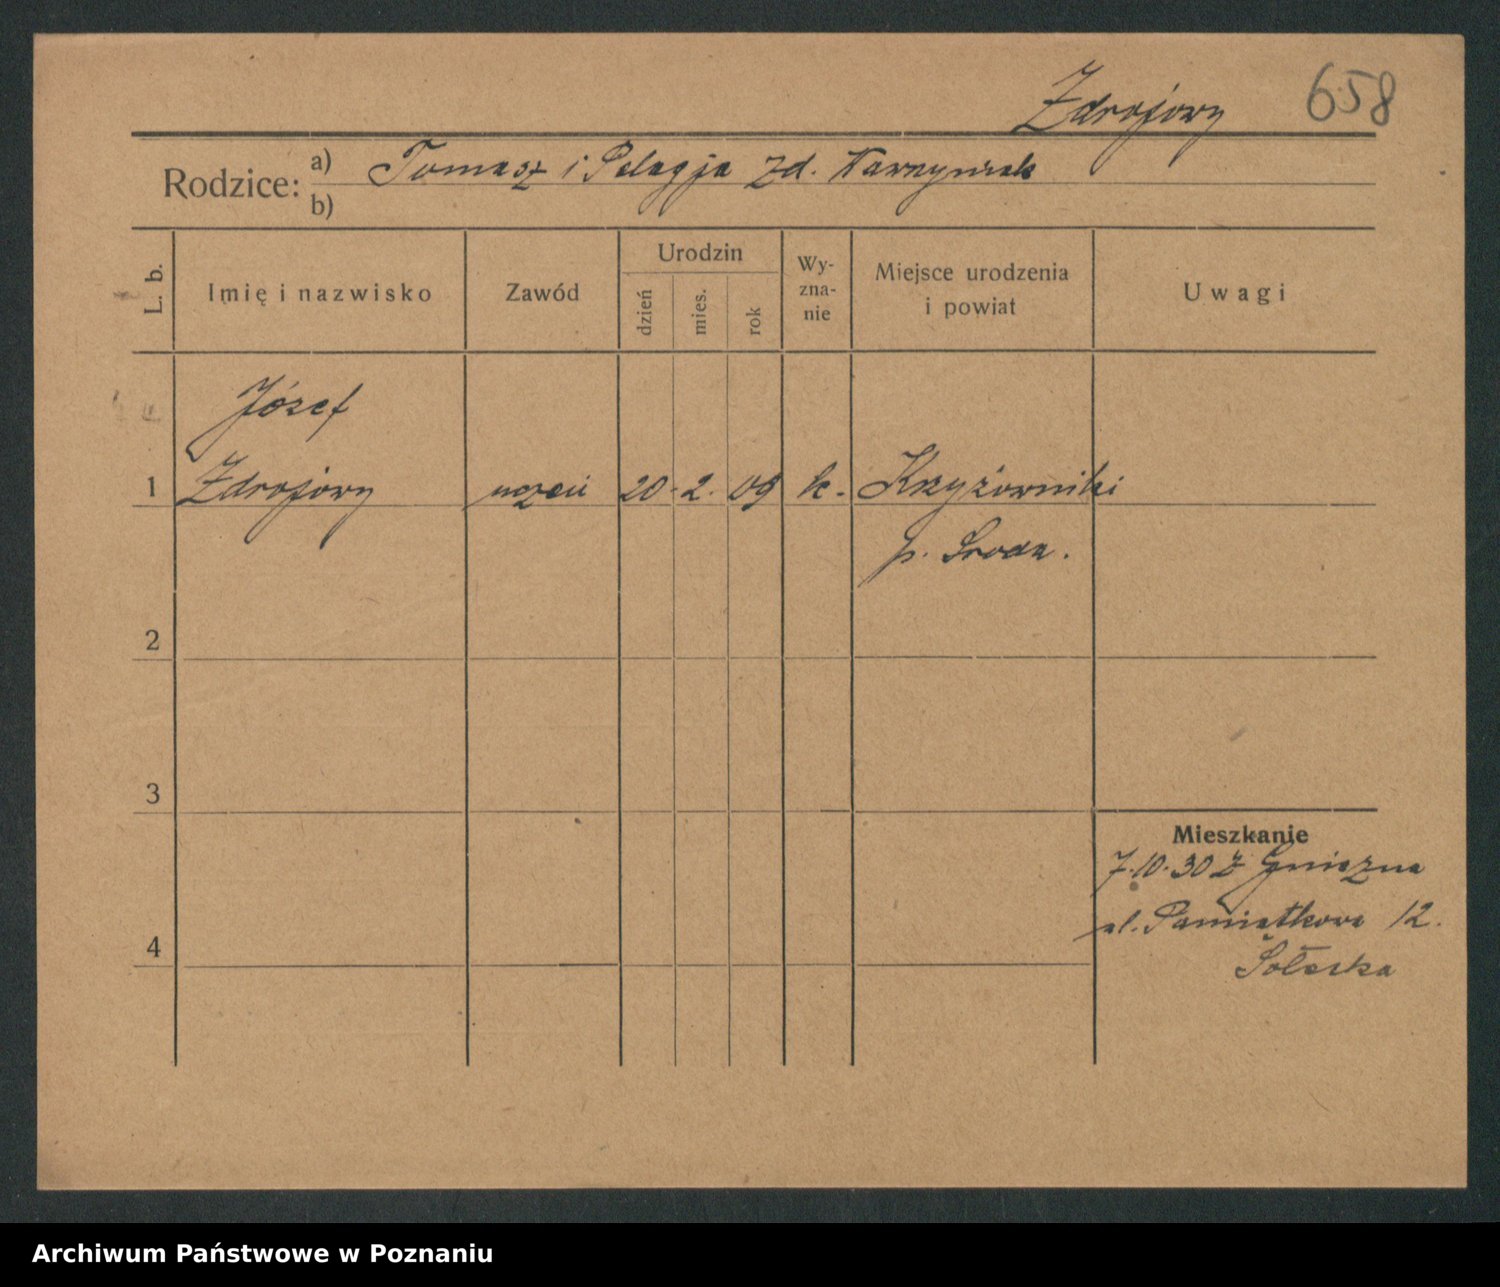 Zdrojowy 658
Rodzice: a) Tomasz i Pelagja zd.
b)
L. b. Imię i nazwisko Zawód Urodzin dzień mies. rok Wy-zna-nie Miejsce urodzenia i powiat Uwagi
Józef
1 Zdrojowy uczeń 20. 2. 09 k. Krzyżowniki
p. Sroda.
2
3
Mieszkanie
7.10.30 z Gniezna
ul. Pamiątkowa 12.
4
Archiwum Państwowe w Poznaniu